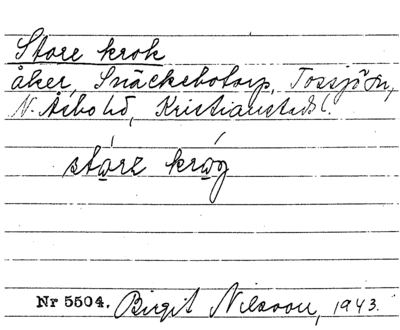 Store krok
åker, Snäckebotorp, Tossjön,
N. Åsbo hd, Kristianstads l.
stóre króg
Nr 5504. Birgit Nilsson, 1943.